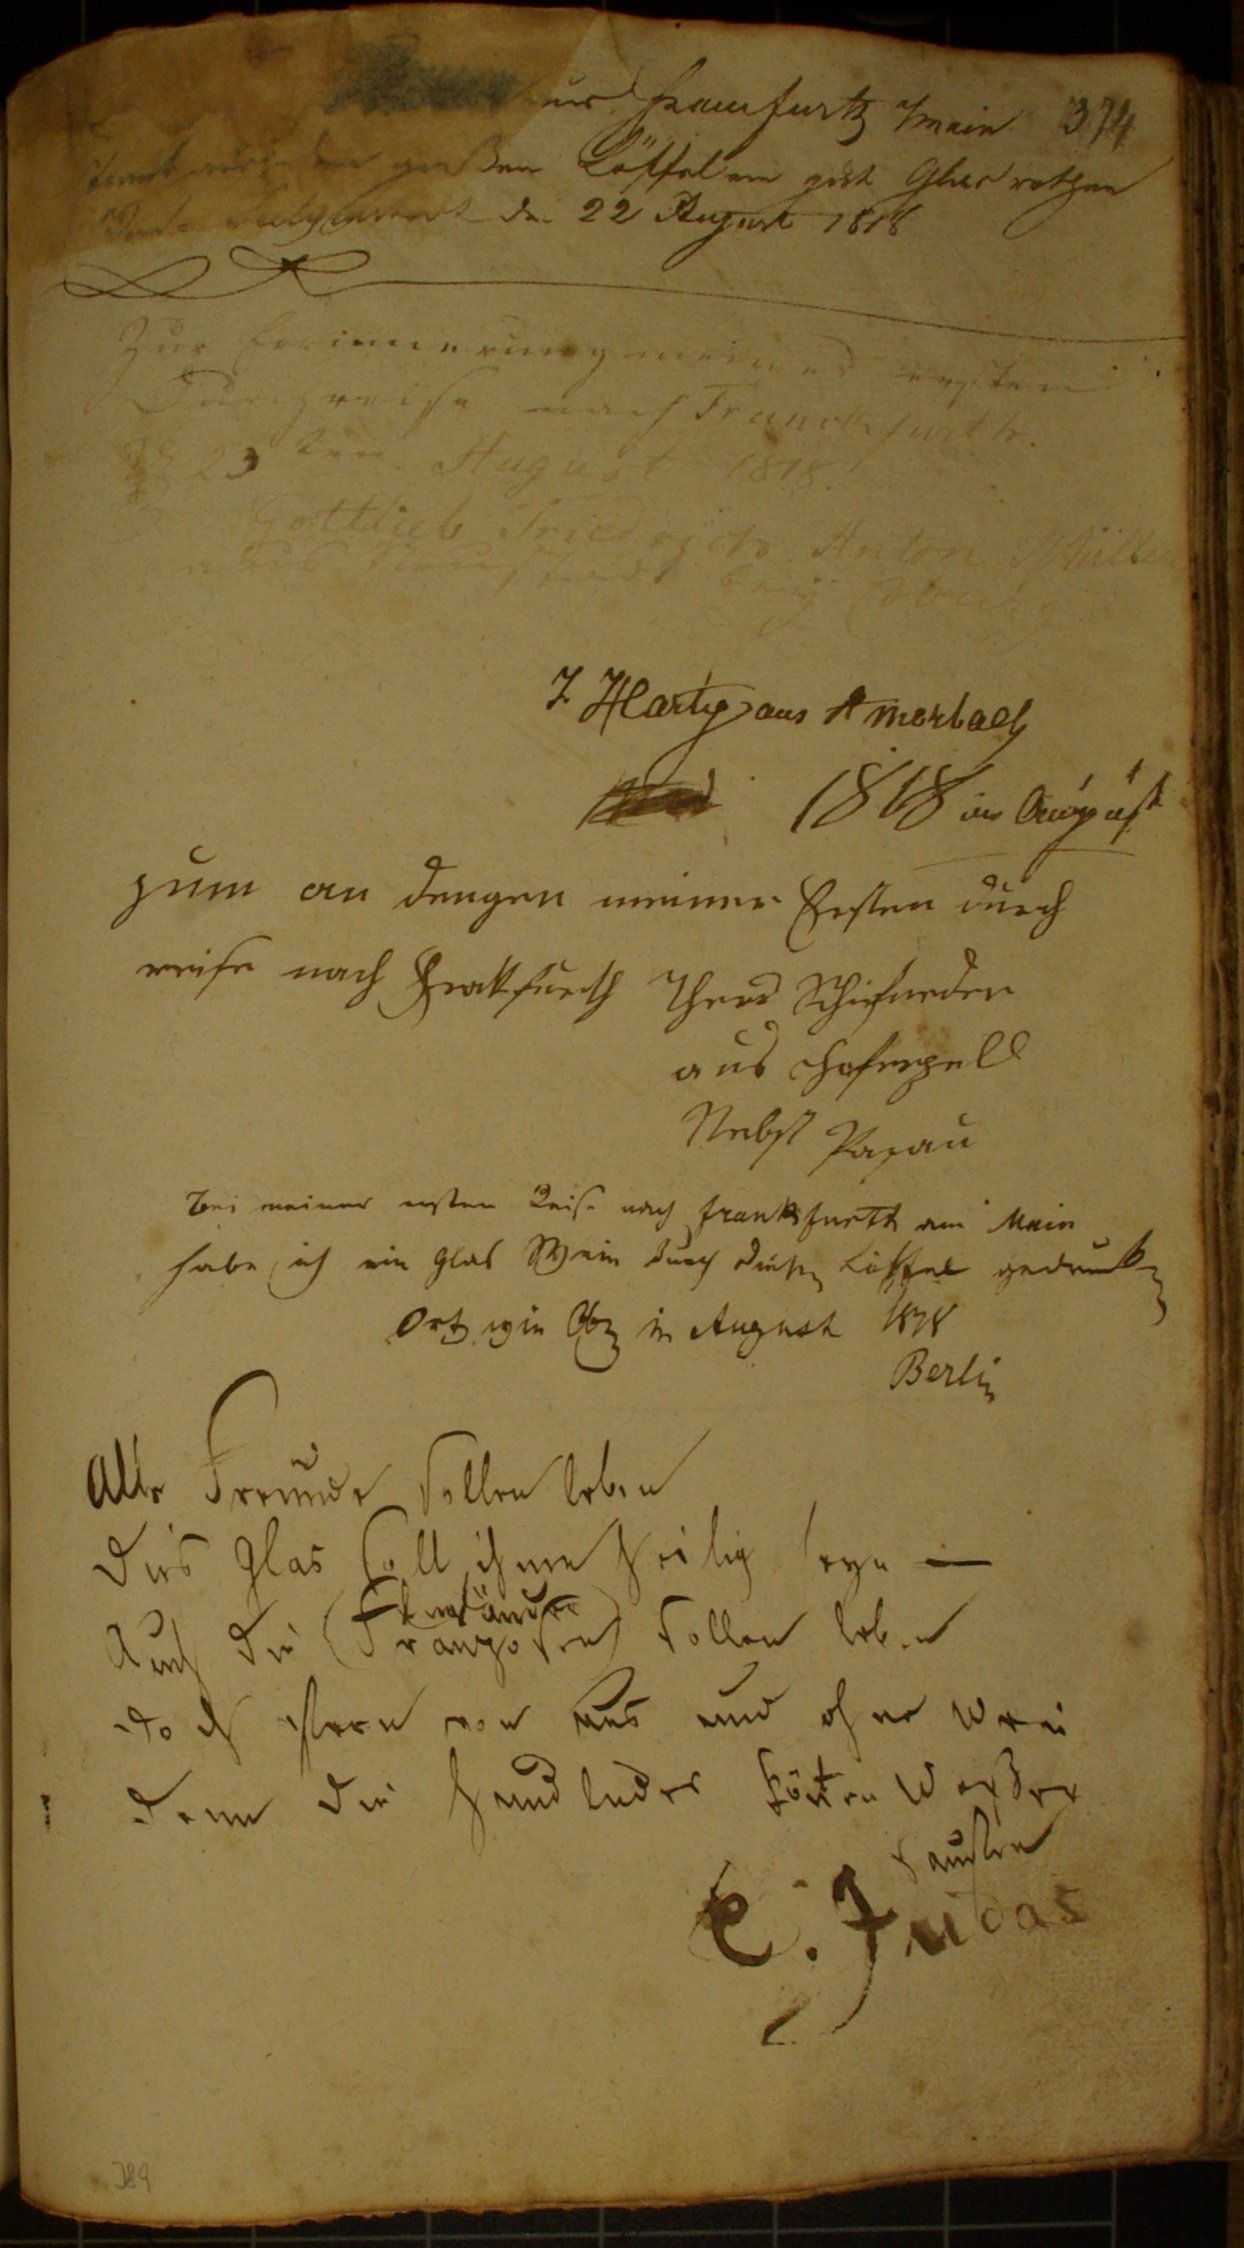 aus Framfurtz Main 374
großen Löffel ein gut Glas rothen
Seligenstadt den 22 August 1818
Zur Erinnerung meiner ersten
Durchreise nach Franckfurth.
23 ten August 1818.
Gottlieb Friedrich Anton Müller
aus Neustadt bey Coburg
J Hartig aus Amorbach
1818 im August
zum an dengen meiner Ersten durch
reise nach Frakfurth
aus Hafnerzell
Nebst Pasau
Bei meiner ersten Reise nach Frankfurth am Main
habe ich ein Glas Wein durch diesen Löffel gedrunken
im August 1818
Berlin
Alle Freunde sollen leben
Dies Glas soll ihnen heilig seyn —
Auch die (Franzosen) sollen leben
doch fern von uns und ohne Wein
denn die Hundluder können Waßer
saufen
C. Judas
389